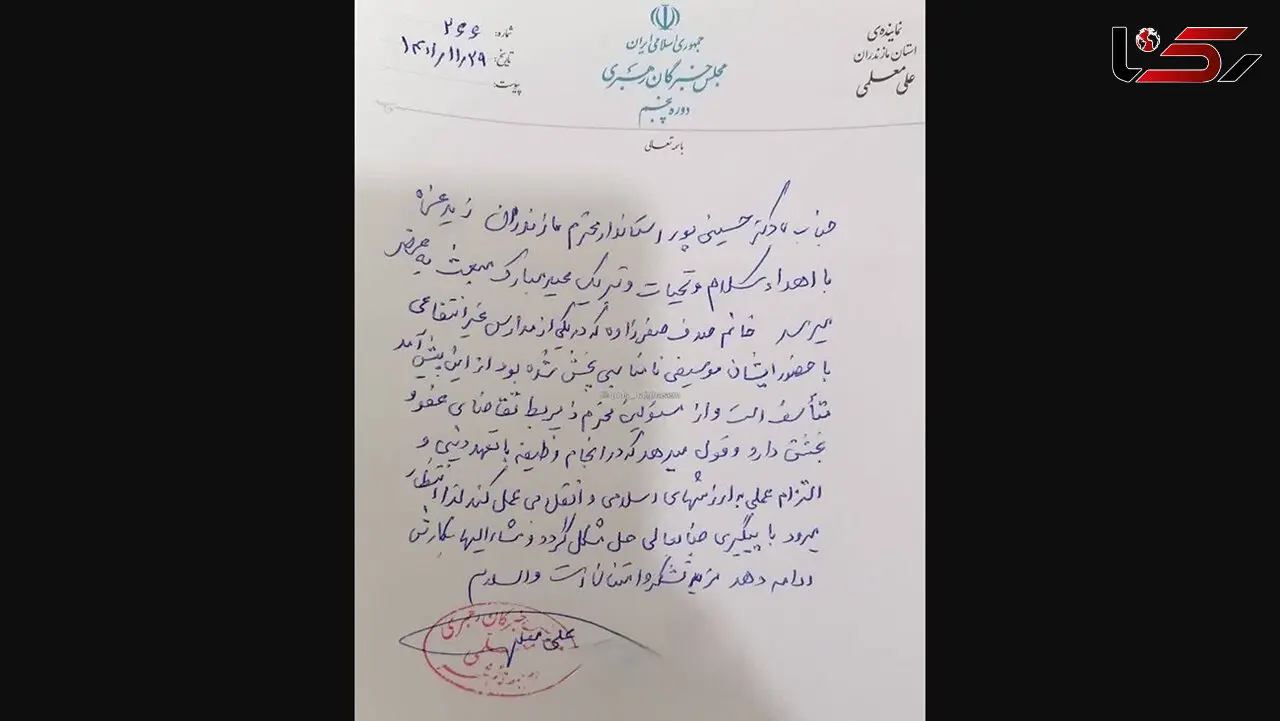 نماینده‌ی
استان مازندران
علی معلمی
جمهوری اسلامی ایران
مجلس خبرگان رهبری
دوره پنجم
شماره: ۲۶۶
تاریخ: ۱۴۰۱/۱۱/۲۹
پیوست:
رکنا
باسمه تعالی
جناب آقای دکتر حسینی پور استاندار محترم مازندران زید عزه
با اهداء سلام و تحیات و تبریک عید مبارک مبعث به عرض
میرسد خانم صدف صفرزاده که در یکی از مدارس غیر انتقاعی
با حضور ایشان موسیقی نامناسبی پخش شده بود از این پیش آمد
متأسف است و از مسئولین محترم ذیربط تقاضای عفو و
بخشش دارد و قول میدهد که در انجام وظیفه با تعهد دینی و
التزام عملی به ارزشهای اسلامی و انقلابی عمل کند لذا انتظار
میرود با پیگیری جنابعالی حل مشکل گردد و مشار الیها بکارش
ادامه دهد مزید تشکر و امتنان است والسلام
علی معلمی
خبرگان رهبری